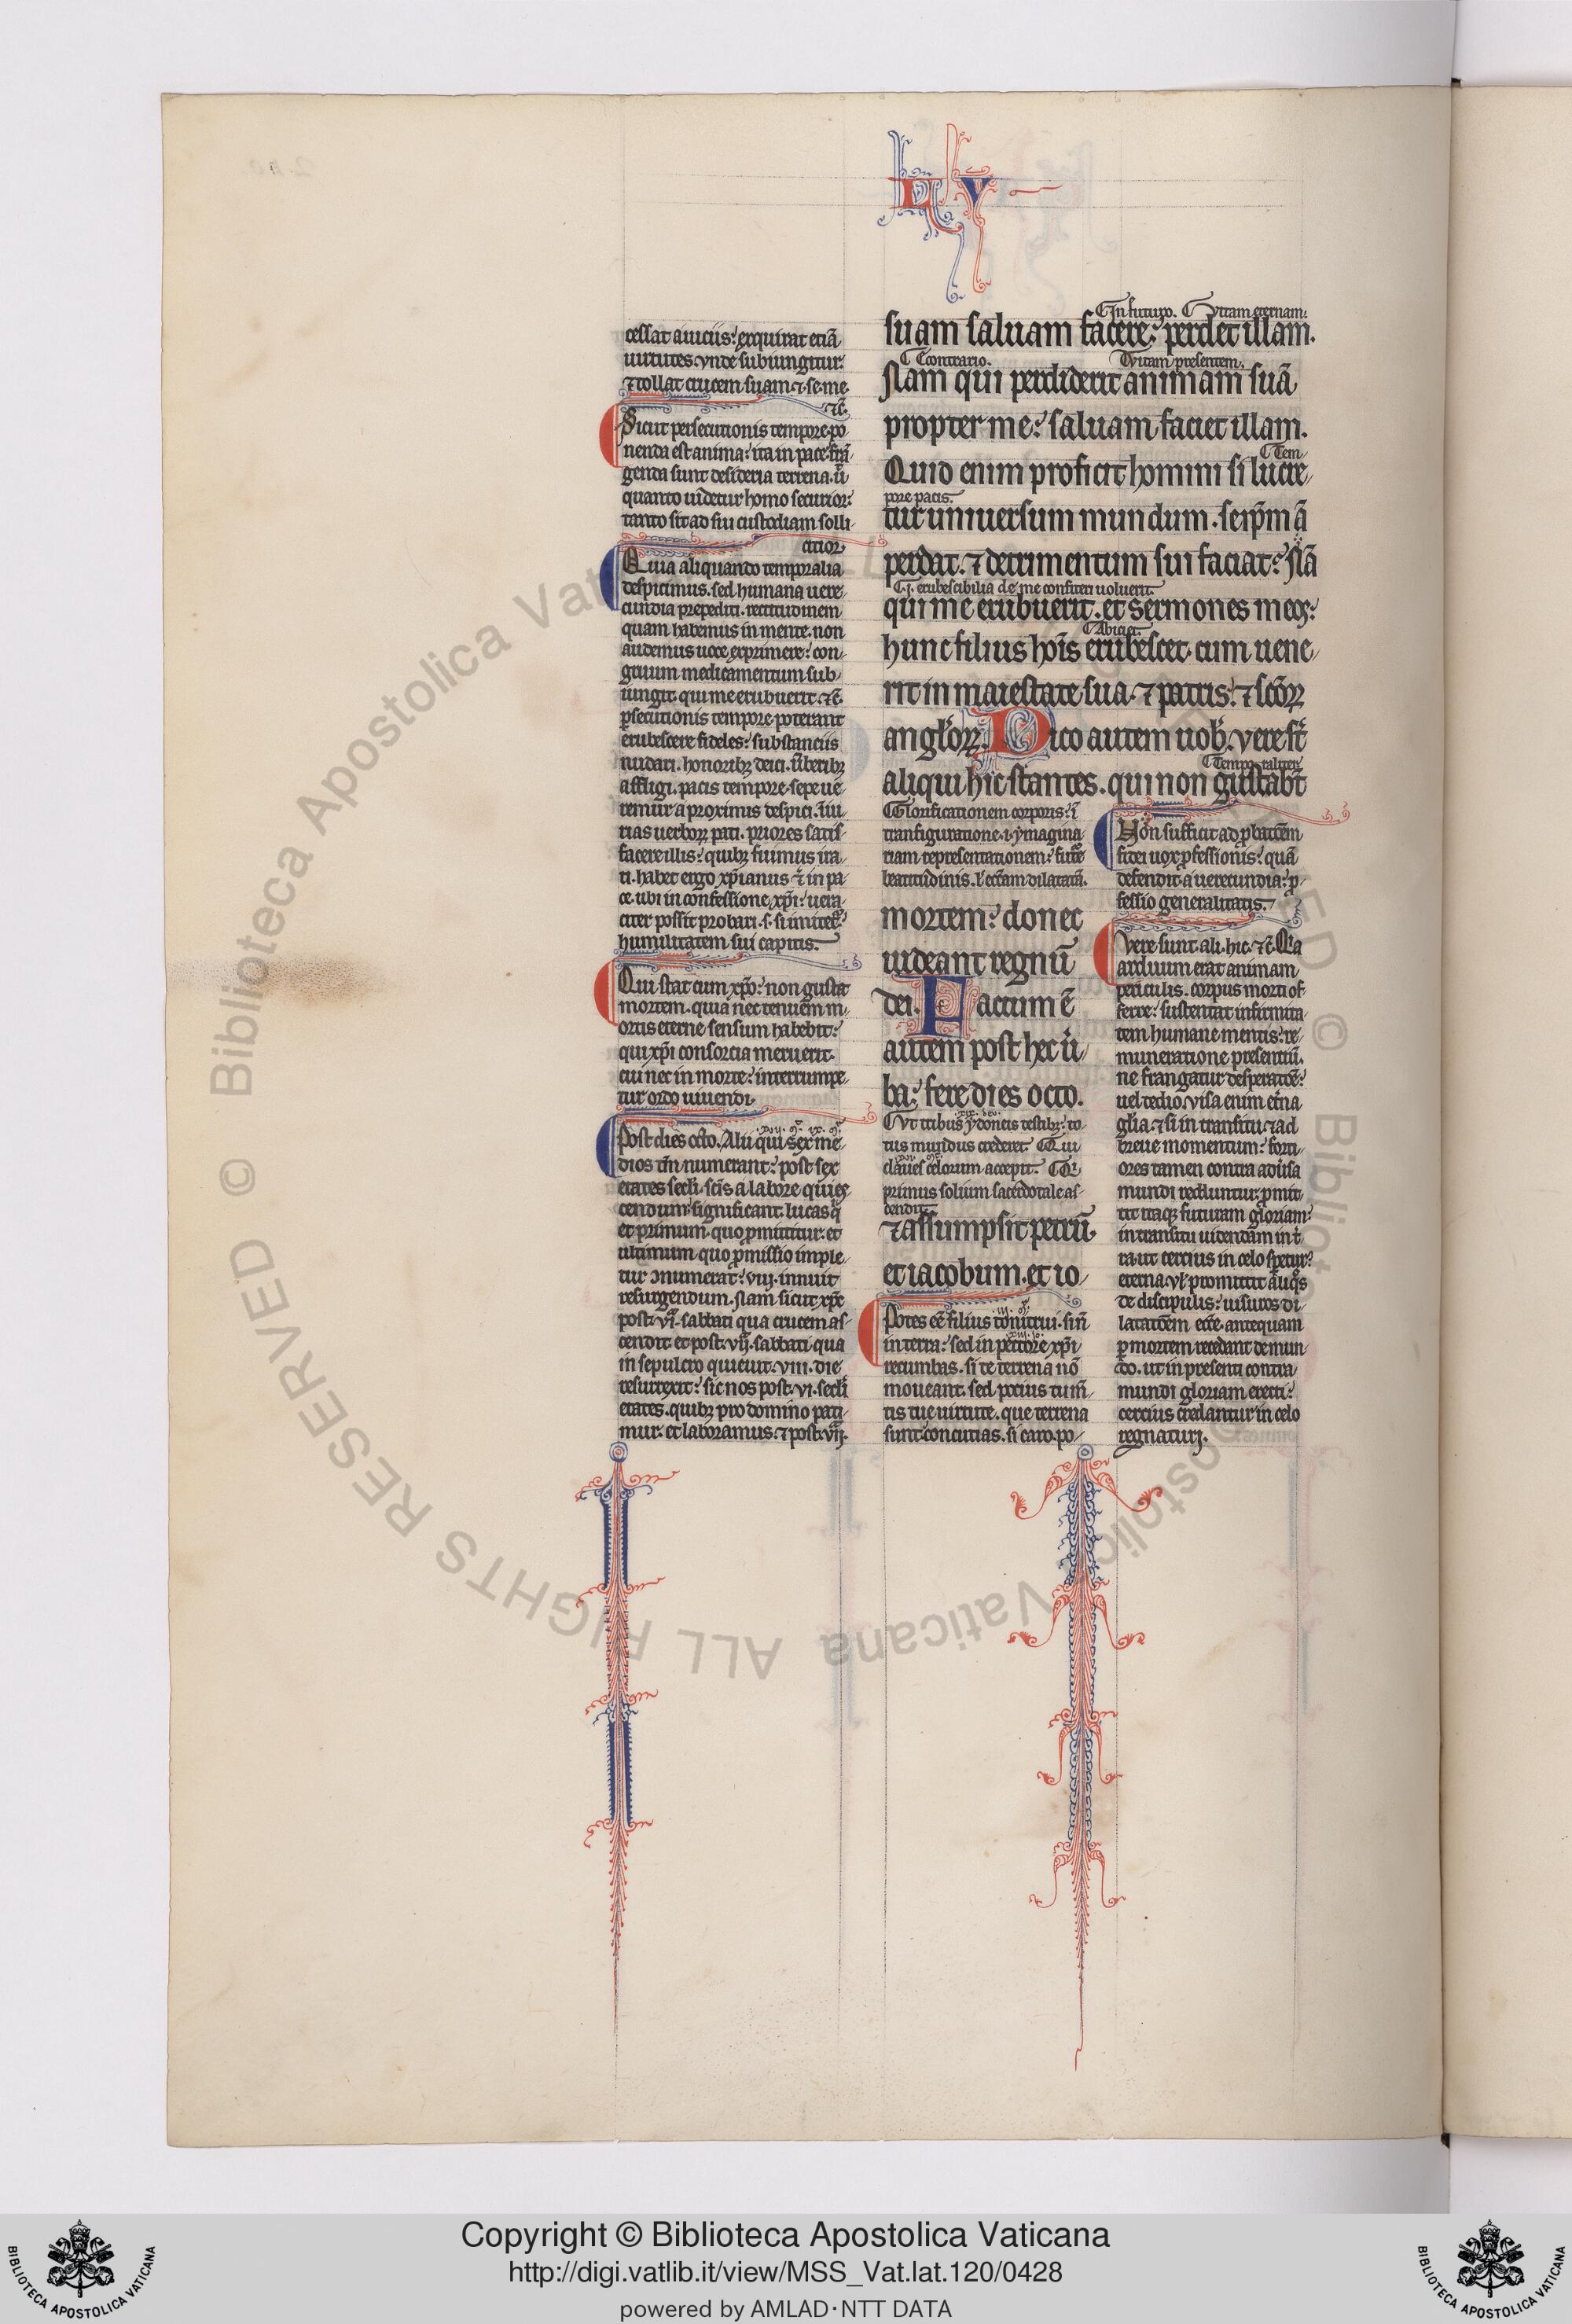 LV
cessat a uiciis: exquirat etiā
uirtutes. vnde subiungitur:
⁊ tollat crucem suam ⁊ se. me.
⁊c̄.
Sicut persecutionis tempore po
nenda est anima: ita in pace frā
genda sunt desideria terrena. ū
quanto uidetur homo securior:
tanto sit ad sui custodiam solli
citior.
Quia aliquando temporalia
despicimus. sed humana uere
cundia prepediti. rectitudinem
quam habemus in mente. non
audemus uoce exprimere: con
gruum medicamentum sub
iungit. qui me erubuerit. ⁊c̄.
ꝑsecutionis tempore poterant
erubescere fideles: substanciis
nudari. honoribꝫ deici. ūberibꝫ
affligi. pacis tempore. sepe ue
remur a proximis despici. īiu
rias uerboꝝ pati. priores satis
facere illis: quibꝫ fuimus ira
ti. habet ergo xp̄ianus ⁊ in pa
ce. ubi in confessione xp̄i: uera
citer possit probari. s. si imitet̄
humilitatem sui capitis.
Qui stat cum xp̄o: non gustat
mortem. quia nec tenuem m
ortis eterne sensum habebit:
qui xp̄i consorcia meruerit.
cui nec in morte: interrumpe
tur ordo uiuendi.
Post dies octo. Alii qui sex me
dios tm̄ numerant: post sex
etates sec̄li. sc̄is a labore quies
cendum significant. lucas q̄
et primum. quo ꝓmittitur. et
ultimum quo ꝓmissio imple
tur ↄnumerat: viij. innuit
resurgendum. Nam sicut xp̄c
post. vj. sabbati qua crucem as
cendit. et post. vij. sabbati. qua
in sepulcro quieuit. viii. die
resurrexit: sic nos post. vi. sec̄li
etates. quibꝫ pro domino pati
mur. et laboramus. ⁊ post. vij.
In futuro. Vitam eternam.
suam saluam facere: perdet illam.
Econtrario. Vitam presentem.
Nam qui perdiderit animam suā
propter me: saluam faciet illam.
Tem
Quid enim proficit homini si lucre
pore pacis.
tur uniuersum mundum. seip̄m ā
perdat. ⁊ detrimentum sui faciat: Nā
.i. erubescibilia de me confiteri noluerit.
qui me erubuerit. et sermones meos:
Abiciet.
hunc filius hoīs erubescet. cum uene
rit in maiestate sua. ⁊ patris: ⁊ sc̄oꝝ
angl̄oꝝ. Dico autem uob̄. vere st̄
Temporaliter
aliqui hic stantes. qui non gustabt̄
Glorificationem corporis: ī
tranfiguratione. i. ymagina
riam representationem: futre
beatitudinis. ł ecc̄am dilatatā.
mortem: donec
uideant regnū
dei. Factum ē
autem post hec ū
ba: fere dies octo.
Vt tribus ydoneis testibꝫ: to
tus mundus crederet. Qui
claues celorum accepit. Qi
primus solium sacerdotale as
cendit.
⁊ assumpsit petrū.
et iacobum. et io
Potes eē filius tonitrui. si nō
in terra: sed in pectore xp̄i
recumbas. si te terrena nō
moueant. sed pocius tum̄
tis tue uirtute. que terrena
sunt concutias. si caro. po
Non sufficit ad ꝓbatōem
fidei uox ꝓfessionis: quā
defendit a uerecundia: ꝓ
fessio generalitatis.
Vere sunt ali. hic. ⁊c̄. Qa
arduum erat animam
periculis. corpus morti of
ferre: sustentat infirmita
tem humane mentis: re
muneratione presentiū.
ne frangatur desperatōe:
uel tedio. visa enim et̄na
gl̄ia. ⁊ si in transitu ⁊ ad
breue momentum: forti
ores tamen contra aduersa
mundi redduntur. ꝓmit
tit itaqꝫ futuram gloriam:
in transitu uidendam in t̄
ra. ut cercius in celo sꝑetur:
eterna. vł promittit aliqos
de discipulis: uisuros di
latatōem ecc̄e. antequam
ꝑ mortem recedant de mun
do. ut in presenti contra
mundi gloriam erecti:
cercius credantur in celo
regnaturi.
Copyright © Biblioteca Apostolica Vaticana
http://digi.vatlib.it/view/MSS_Vat.lat.120/0428
powered by AMLAD·NTT DATA
BIBLIOTECA APOSTOLICA VATICANA
BIBLIOTECA APOSTOLICA VATICANA